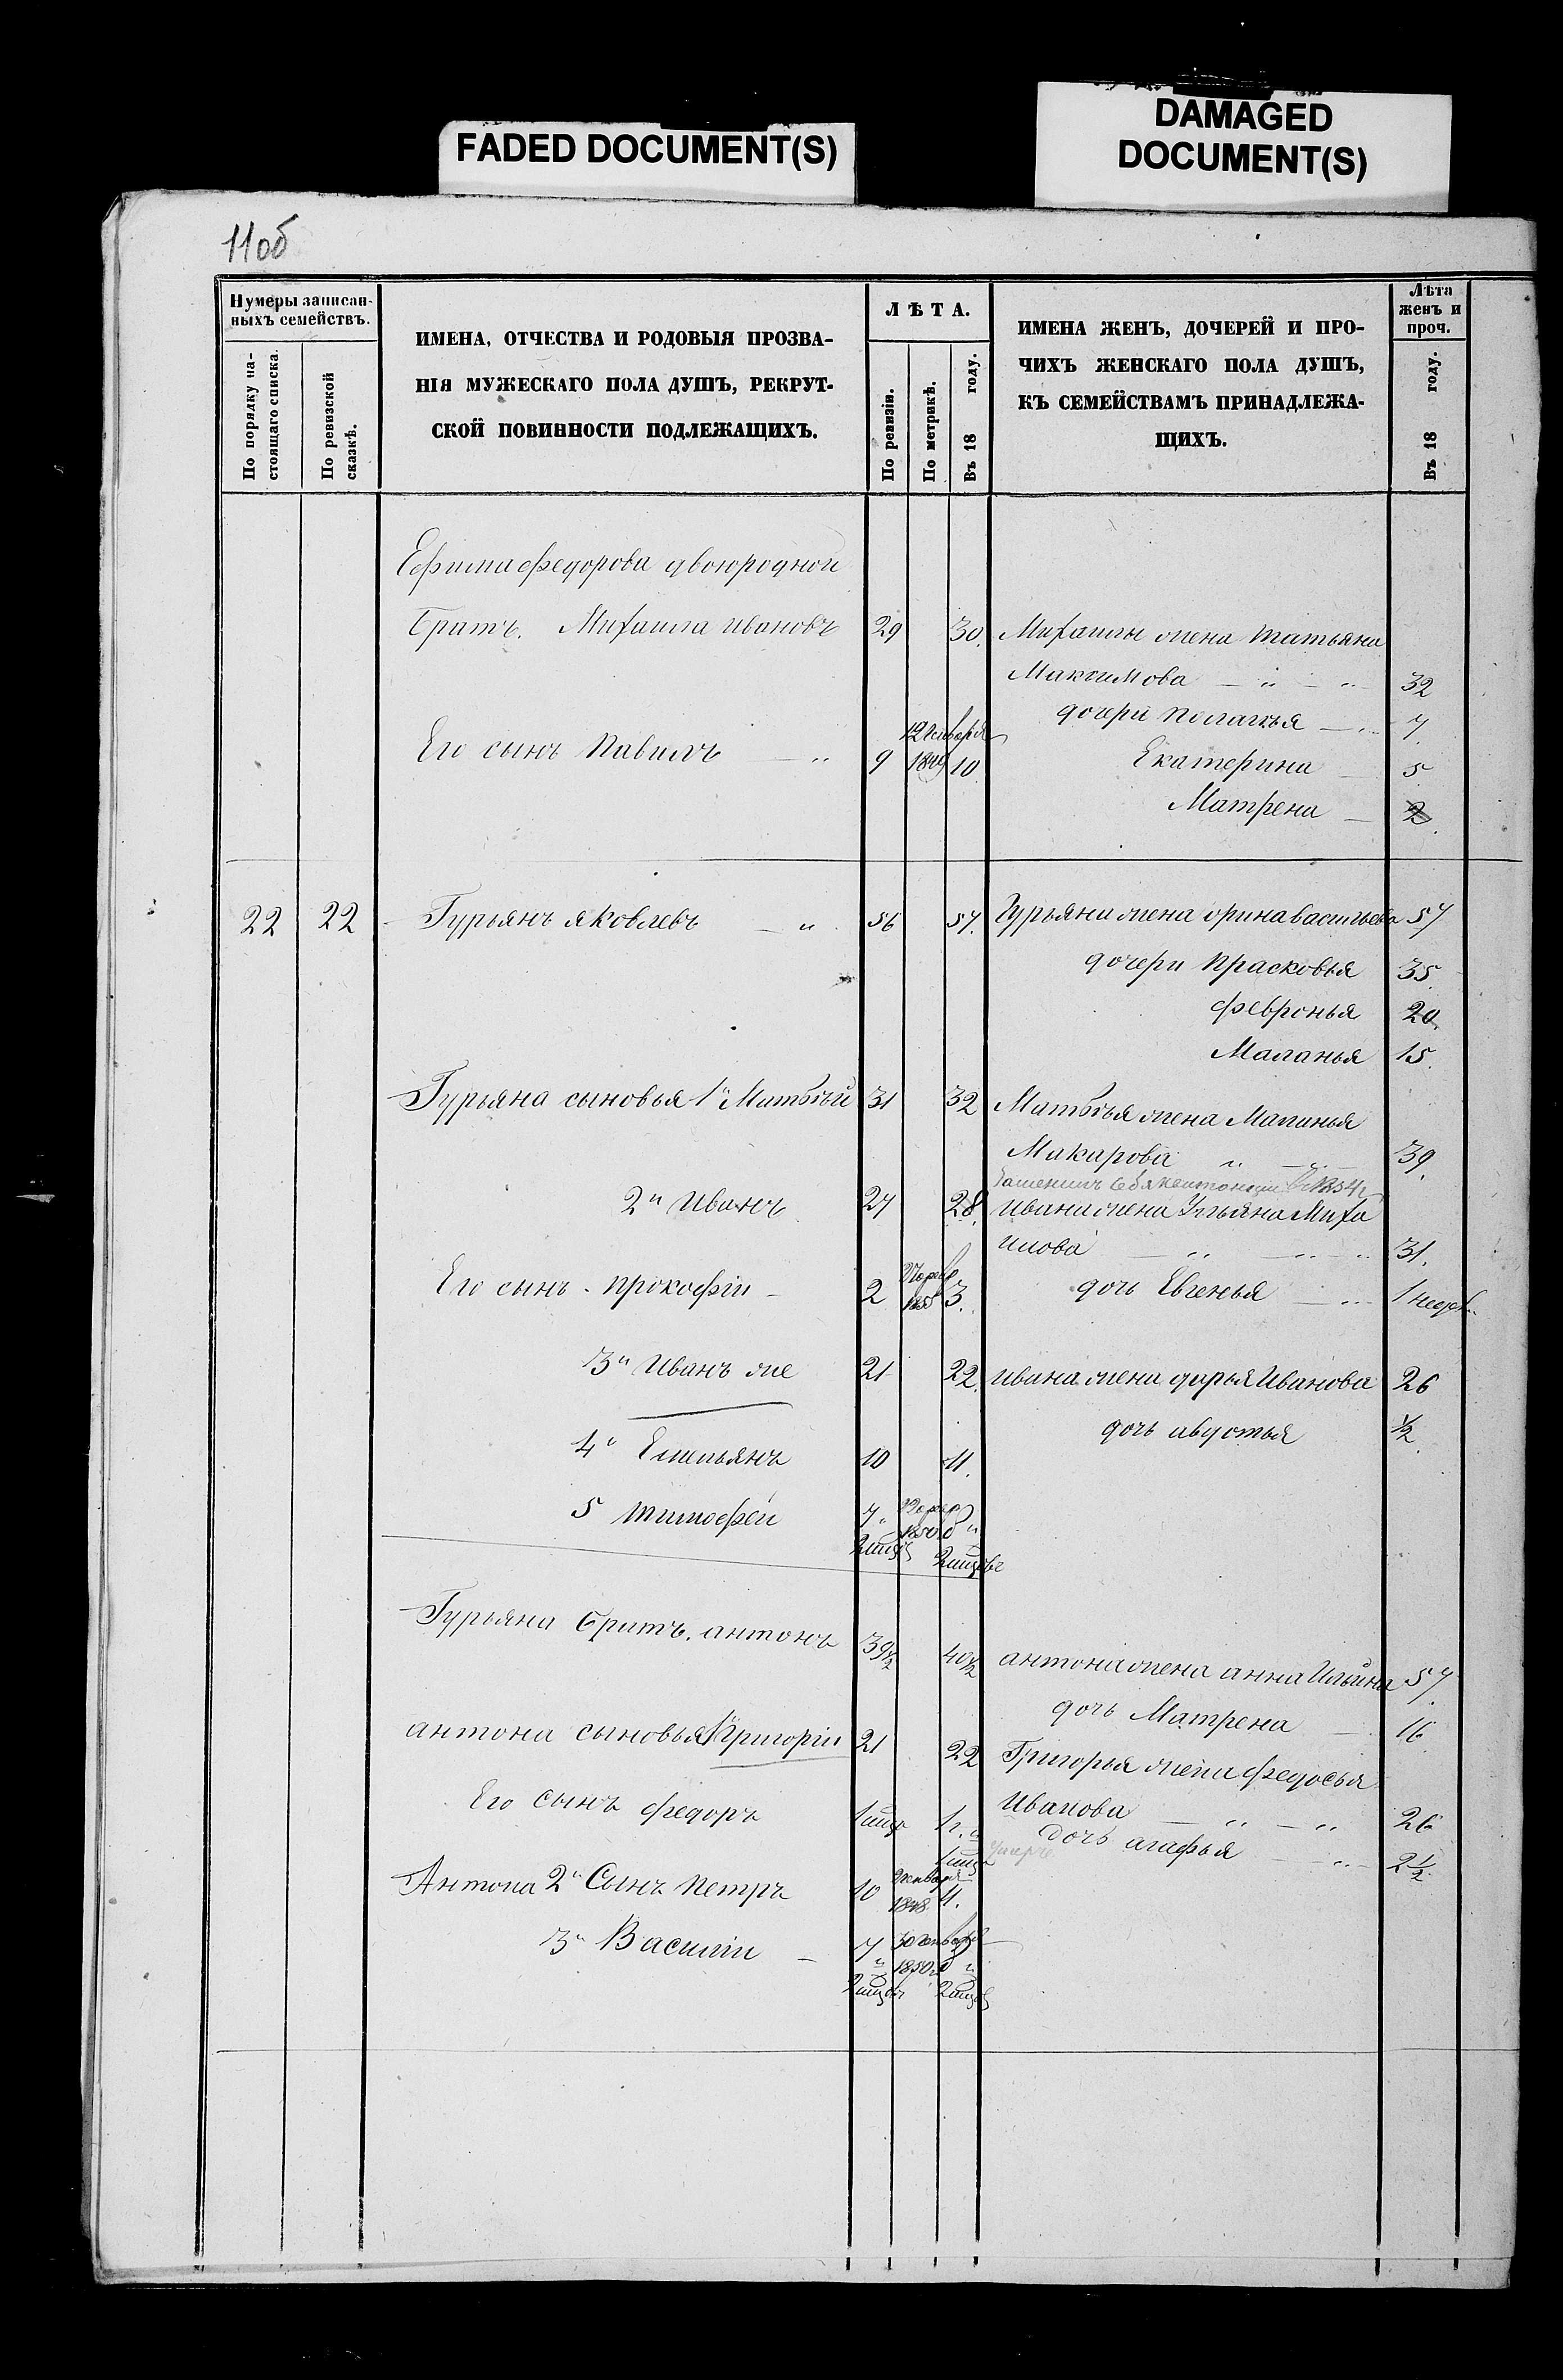 FADED DOCUMENT(S)
DAMAGED
DOCUMENT(S)
11об
Нумеры записан-
ныхъ семействъ.
По порядку на-
стоящаго списка.
По ревизской
сказкѣ.
ИМЕНА, ОТЧЕСТВА И РОДОВЫЯ ПРОЗВА-
НІЯ МУЖЕСКАГО ПОЛА ДУШЪ, РЕКРУТ-
СКОЙ ПОВИННОСТИ ПОДЛЕЖАЩИХЪ.
ЛѢТА.
По ревизіи.
По метрикѣ.
Въ 18 году.
ИМЕНА ЖЕНЪ, ДОЧЕРЕЙ И ПРО-
ЧИХЪ ЖЕНСКАГО ПОЛА ДУШЪ,
КЪ СЕМЕЙСТВАМЪ ПРИНАДЛЕЖА-
ЩИХЪ.
Лѣта
женъ и
проч.
Въ 18 году.
Ефима федорова двоюродной
Братъ. Михаила ивановъ 29 30. Михаилы жена татьяна
Максимова 32
дочери пелагья 7
Его сынъ павилъ 9 12 генваря 1849 10
Екатерина 5
Матрена 2
22 22 Гурьянъ яковлевъ 56 57. Гурьяна жена орина васильева 57
дочери прасковья 35
февронья 20
Маланья 15.
Гурьяна сыновья 1й Матвѣй 31 32 Матвѣя жена Маланья
Макарова 39.
2й Иванъ 27 28. ивана жена Ульяна Миха
илова 31.
Его сынъ прокофіи 2 3. дочь Евгенья 1 недел.
3й Иванъ же 21 22. ивана жена дарья Иванова 26
дочь авдотья 1/2
4й Емельянъ 10 11.
5 тимофеи 7 1850 8
2 мцъ 2 мцовъ
Гурьяна братъ. антонъ 39 1/2 40 1/2 антона жена анна Ильина 57.
дочь Матрена 16
антона сыновья 1й григоріи 21 22 Григорья жена федосья
Иванова 26
Его сынъ федоръ 1 мцъ 1 г. и
1 мцъ
умерла дочь агафья 2 1/2
Антона 2й Сынъ петръ 10 генваря 1848 11.
3й Василіи 7 30 генваря 1850 8
2 мцовъ 2 мцов